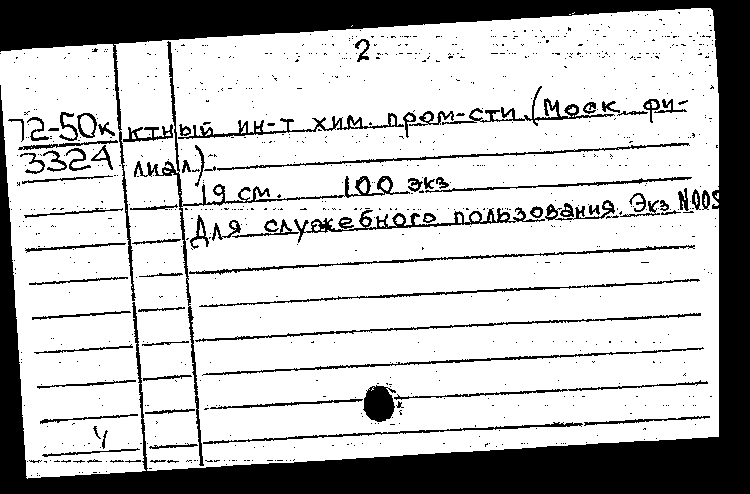 2
72-50к ктный ин-т хим. пром-сти. (Моск. фи-
3324 лиал).
19 см. 100 экз
Для служебного пользования. Экз. N005
ч